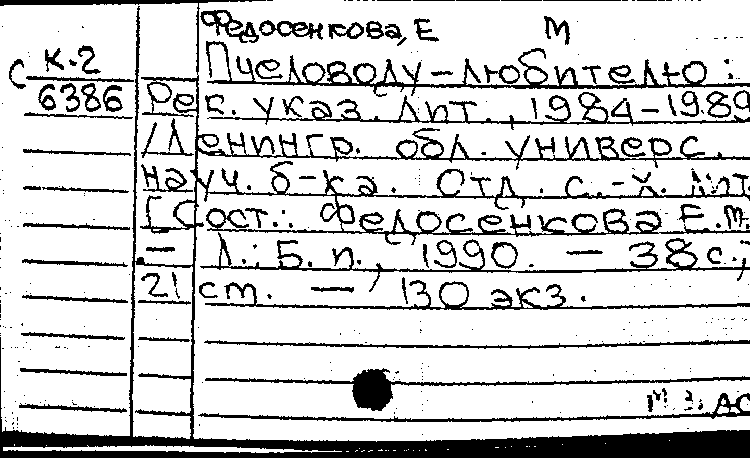 Федосенкова, Е М
Пчеловоду-любителю:
С К-2
6386 Рек. указ. лит., 1984-1989
/Ленингр. обл. универс.
науч. б-ка. Отд. с.-х. лит.
[Сост.: Федосенкова Е.М.
— Л.: Б. и., 1990. — 38 с.;
21 см. — 130 экз.